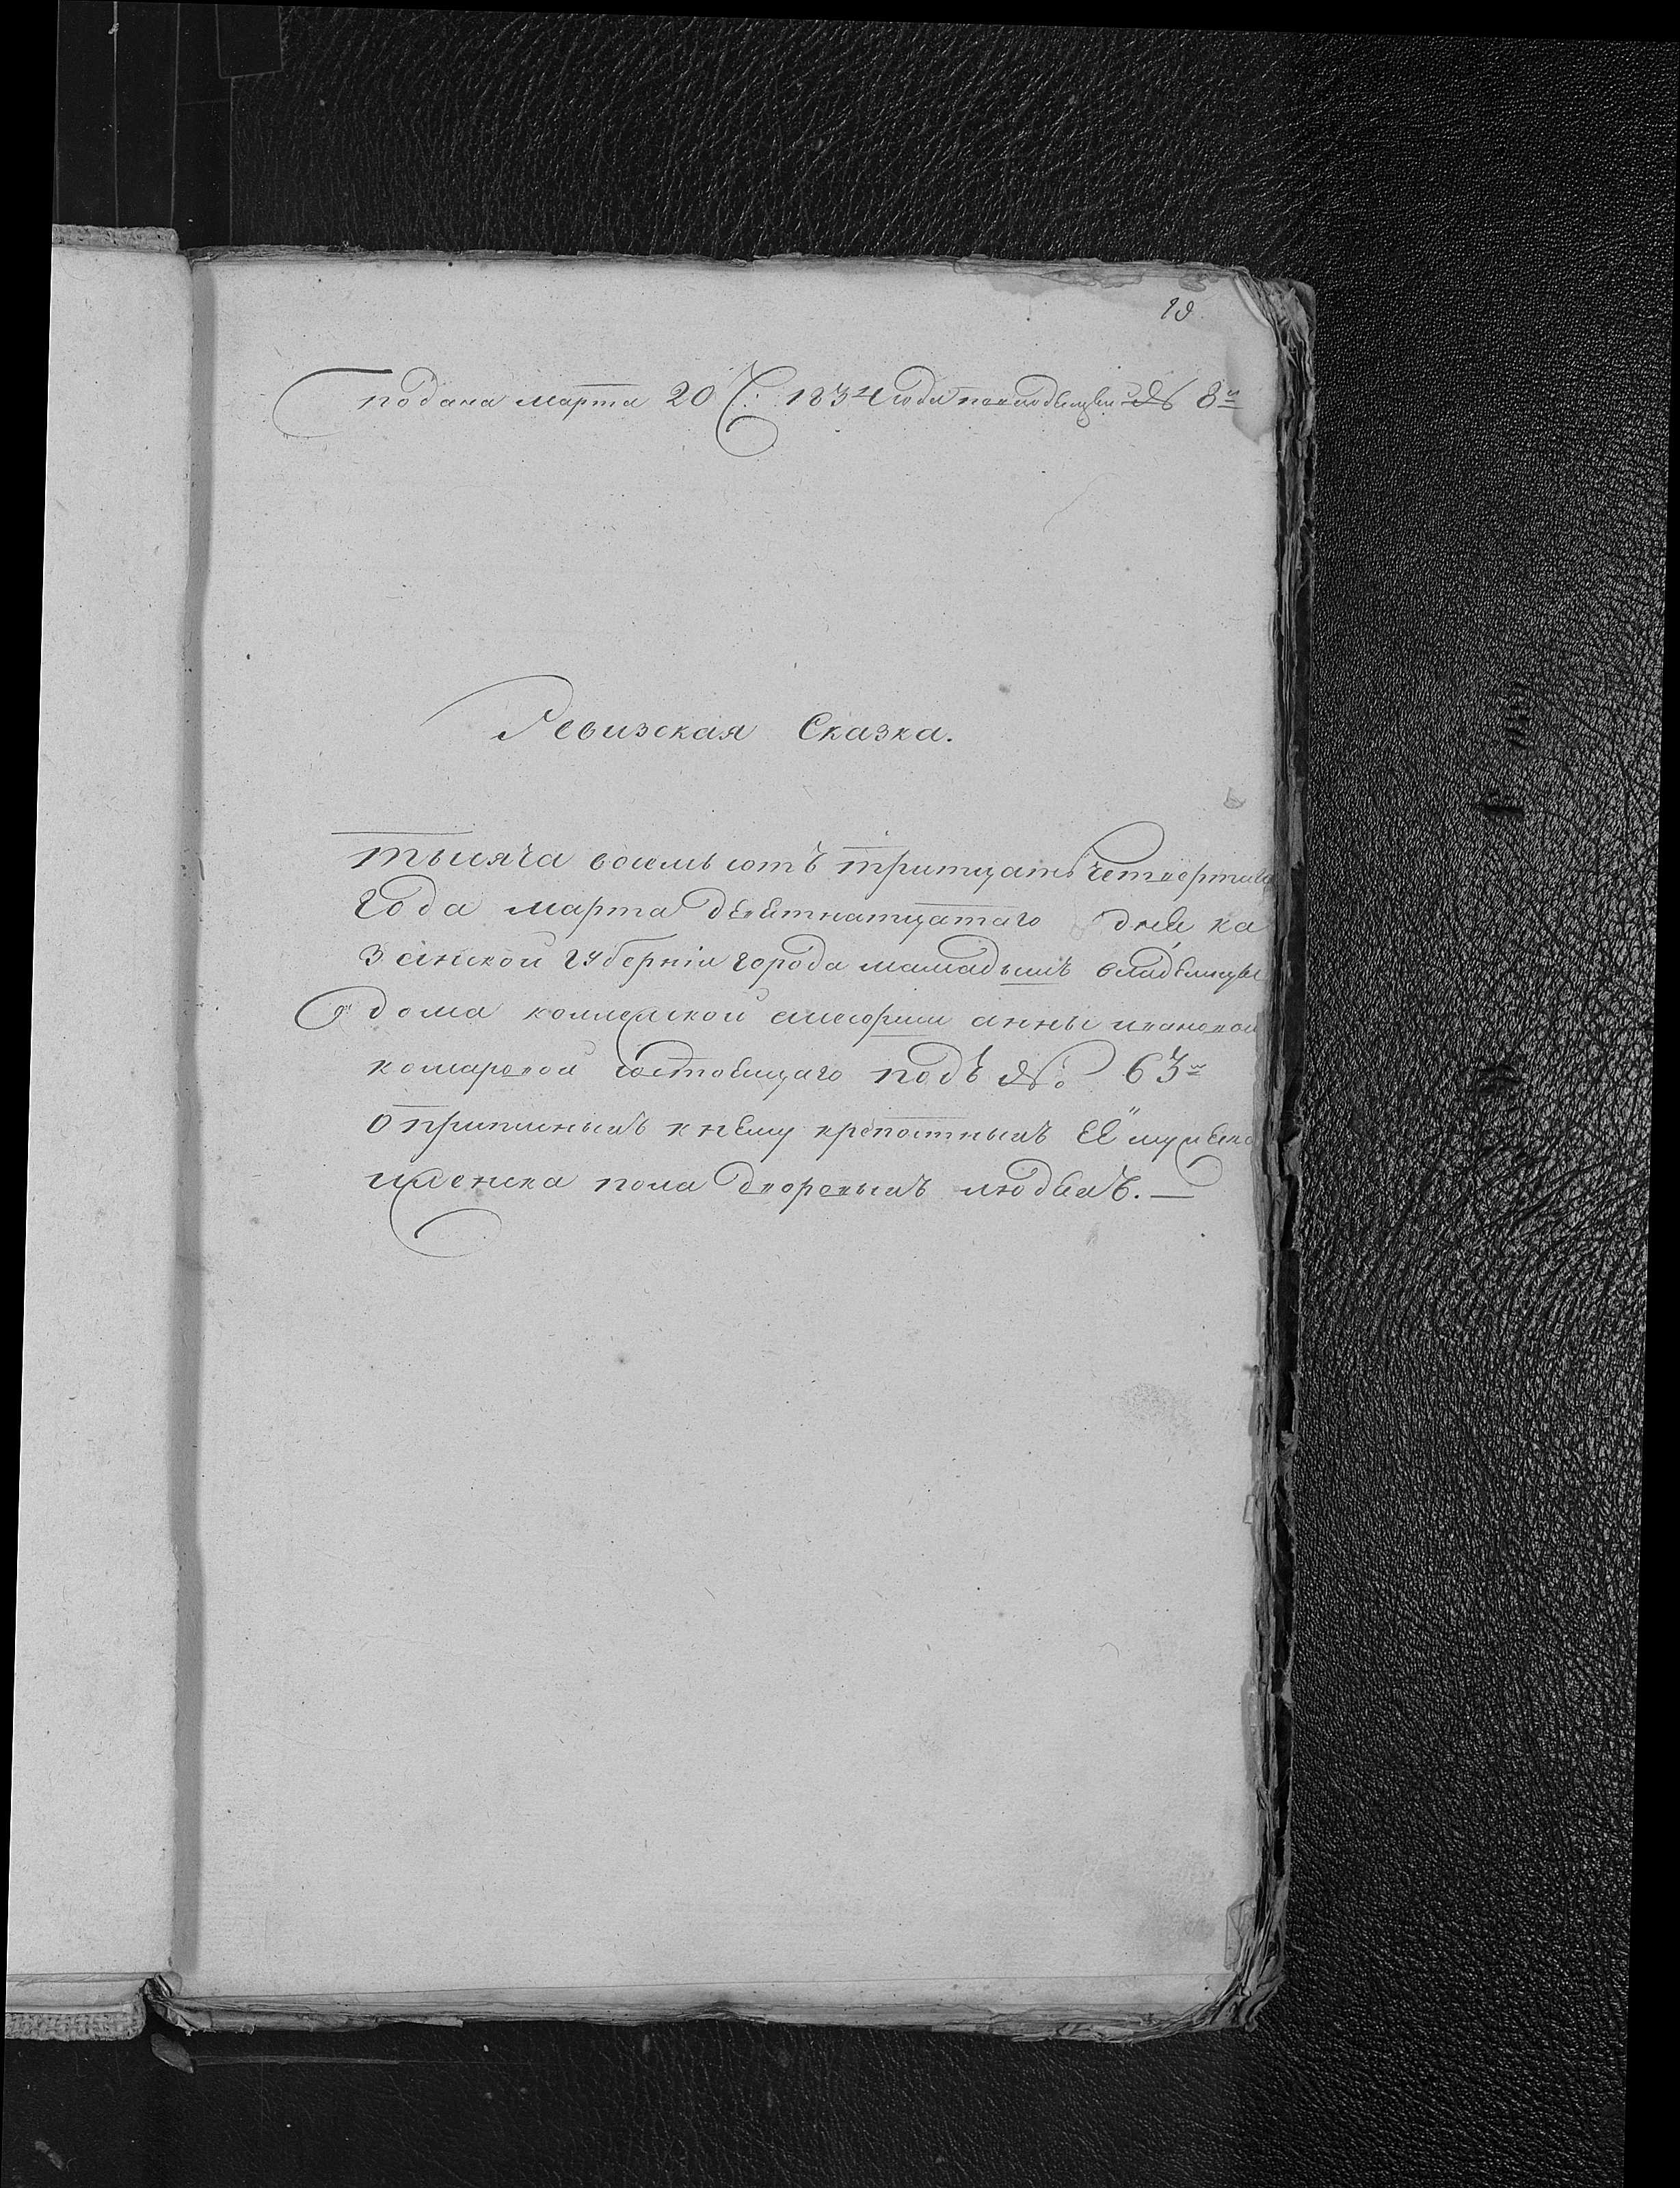 19
подана марта 20 ч. 1834 года повходящей № 8й
Ревизская Сказка.
тысяча восемь сотъ тритцать четвертаго
года марта девятнатцатаго дня ка
занской губерніи города мамадышъ владелицы
дома коллежской ассесорши анны ивановой
комаровой состоящаго подъ № 63м
о приписныхъ кнему крепостныхъ ея мужеска
иженска пола дворовыхъ людяхъ. —